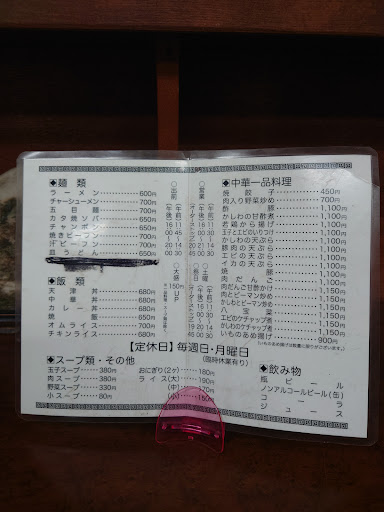 ◆麺 類
ラーメン 600円
チャーシューメン 700円
五目麺 700円
カタ焼ソバ 700円
チャンポン 700円
焼きビーフン 700円
汁ビーフン 700円
皿うどん
◆飯 類
天津丼
中華丼
カレー丼
焼飯
オムライス 700円
チキンライス 680円
◆スープ類・その他
玉子スープ 380円
肉スープ 380円
野菜スープ 330円
小スープ 80円
おにぎり(2ヶ) 180円
ライス(大) 190円
(中) 170円
(小) 150円
○出前
○営業
○大盛 150円UP
◆中華一品料理
焼餃子 450円
肉入り野菜炒め 700円
酢豚 1,100円
かしわの甘酢煮 1,100円
玉子とエビのいりつけ 1,100円
若鶏から揚げ 1,100円
かしわの天ぷら 1,100円
豚肉の天ぷら 1,100円
エビの天ぷら 1,150円
イカの天ぷら 1,150円
焼豚 1,100円
肉だんご 1,100円
肉だんご甘酢かけ 1,150円
肉とピーマン炒め 1,150円
かしわとピーマン炒め 1,150円
八宝菜 1,150円
エビのケチャップ煮 1,150円
かしわのケチャップ煮 1,150円
いものあめ揚げ 900円
【定休日】毎週日・月曜日
(臨時休業有り)
◆飲み物
瓶ビール
ノンアルコールビール(缶)
コーラ
ジュース